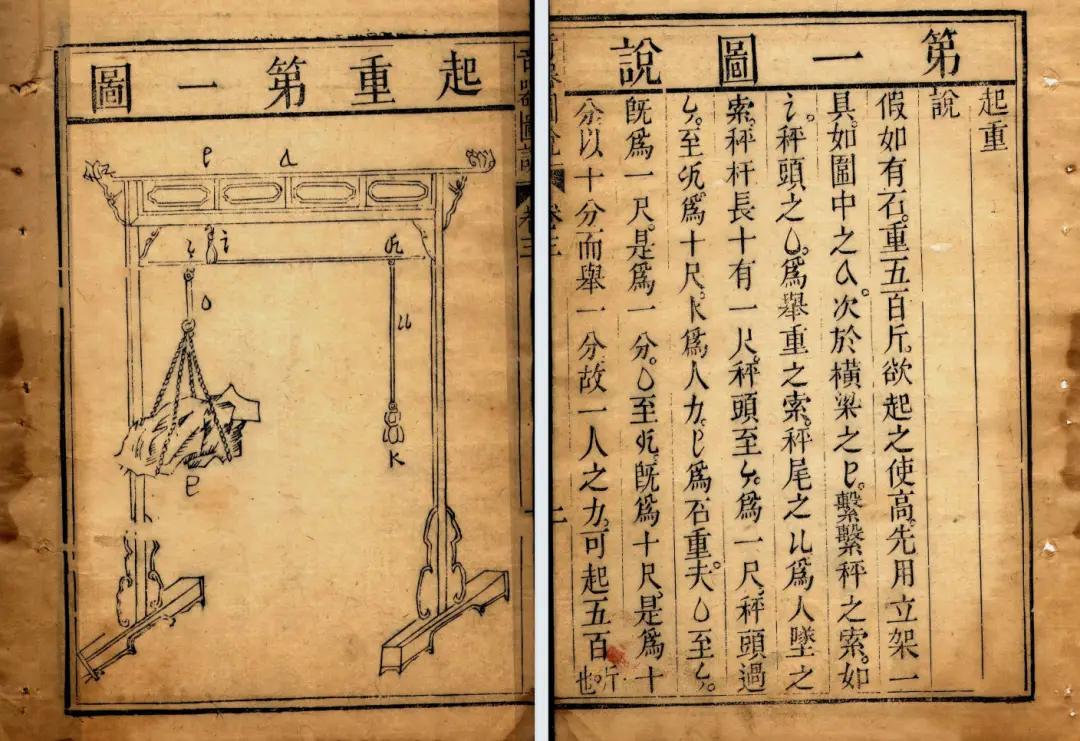 第一圖說
起重
說
假如有石。重五百斤。欲起之使高。先用立架一
具。如圖中之a。次於橫梁之e。繫繫秤之索。如
i。秤頭之o。爲舉重之索。秤尾之u爲人墜之
索。秤杆長十有一尺。秤頭至爲一尺。秤頭過
至爲十尺。k爲人力。e爲石重。夫o至
旣爲一尺。是爲一分。o至旣爲十尺。是爲十
分。以十分而舉一分。故一人之力。可起五百
斤也。
奇器圖說
卷三
起重第一圖
e
a
i
o
u
k
e